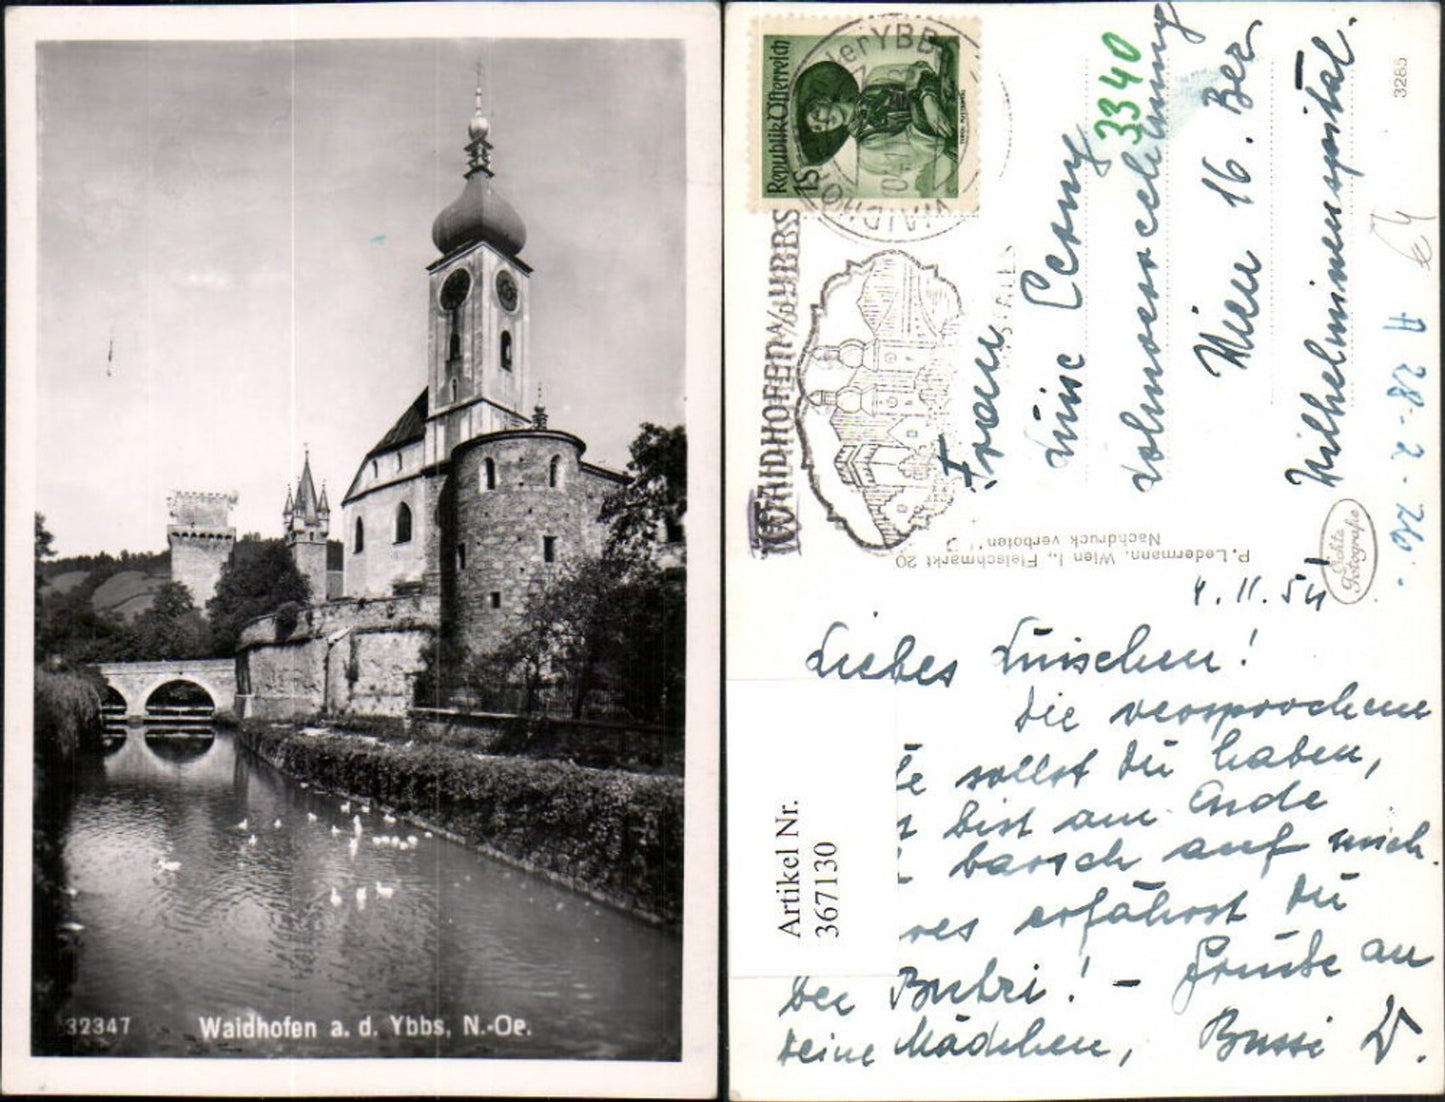 32347
Waidhofen a. d. Ybbs, N.-Oe.
Republik Österreich
1S
WAIDHOFEN A/D YBBS
3340
3285
Frau
Luise Cerny
Wien 16. Bez.
Wilhelminenspital.
A 28-2-76-
P. Ledermann, Wien I., Fleischmarkt 20
Nachdruck verboten
Echte
Fotografie
4. 11. 54
Liebes Luischen!
Die versprochene
sollst Du haben,
bist am Ende
barsch auf mich.
erfährst Du
Bubzi! - Grüße an
Deine Mädchen, Bussi W.
Artikel Nr.
367130